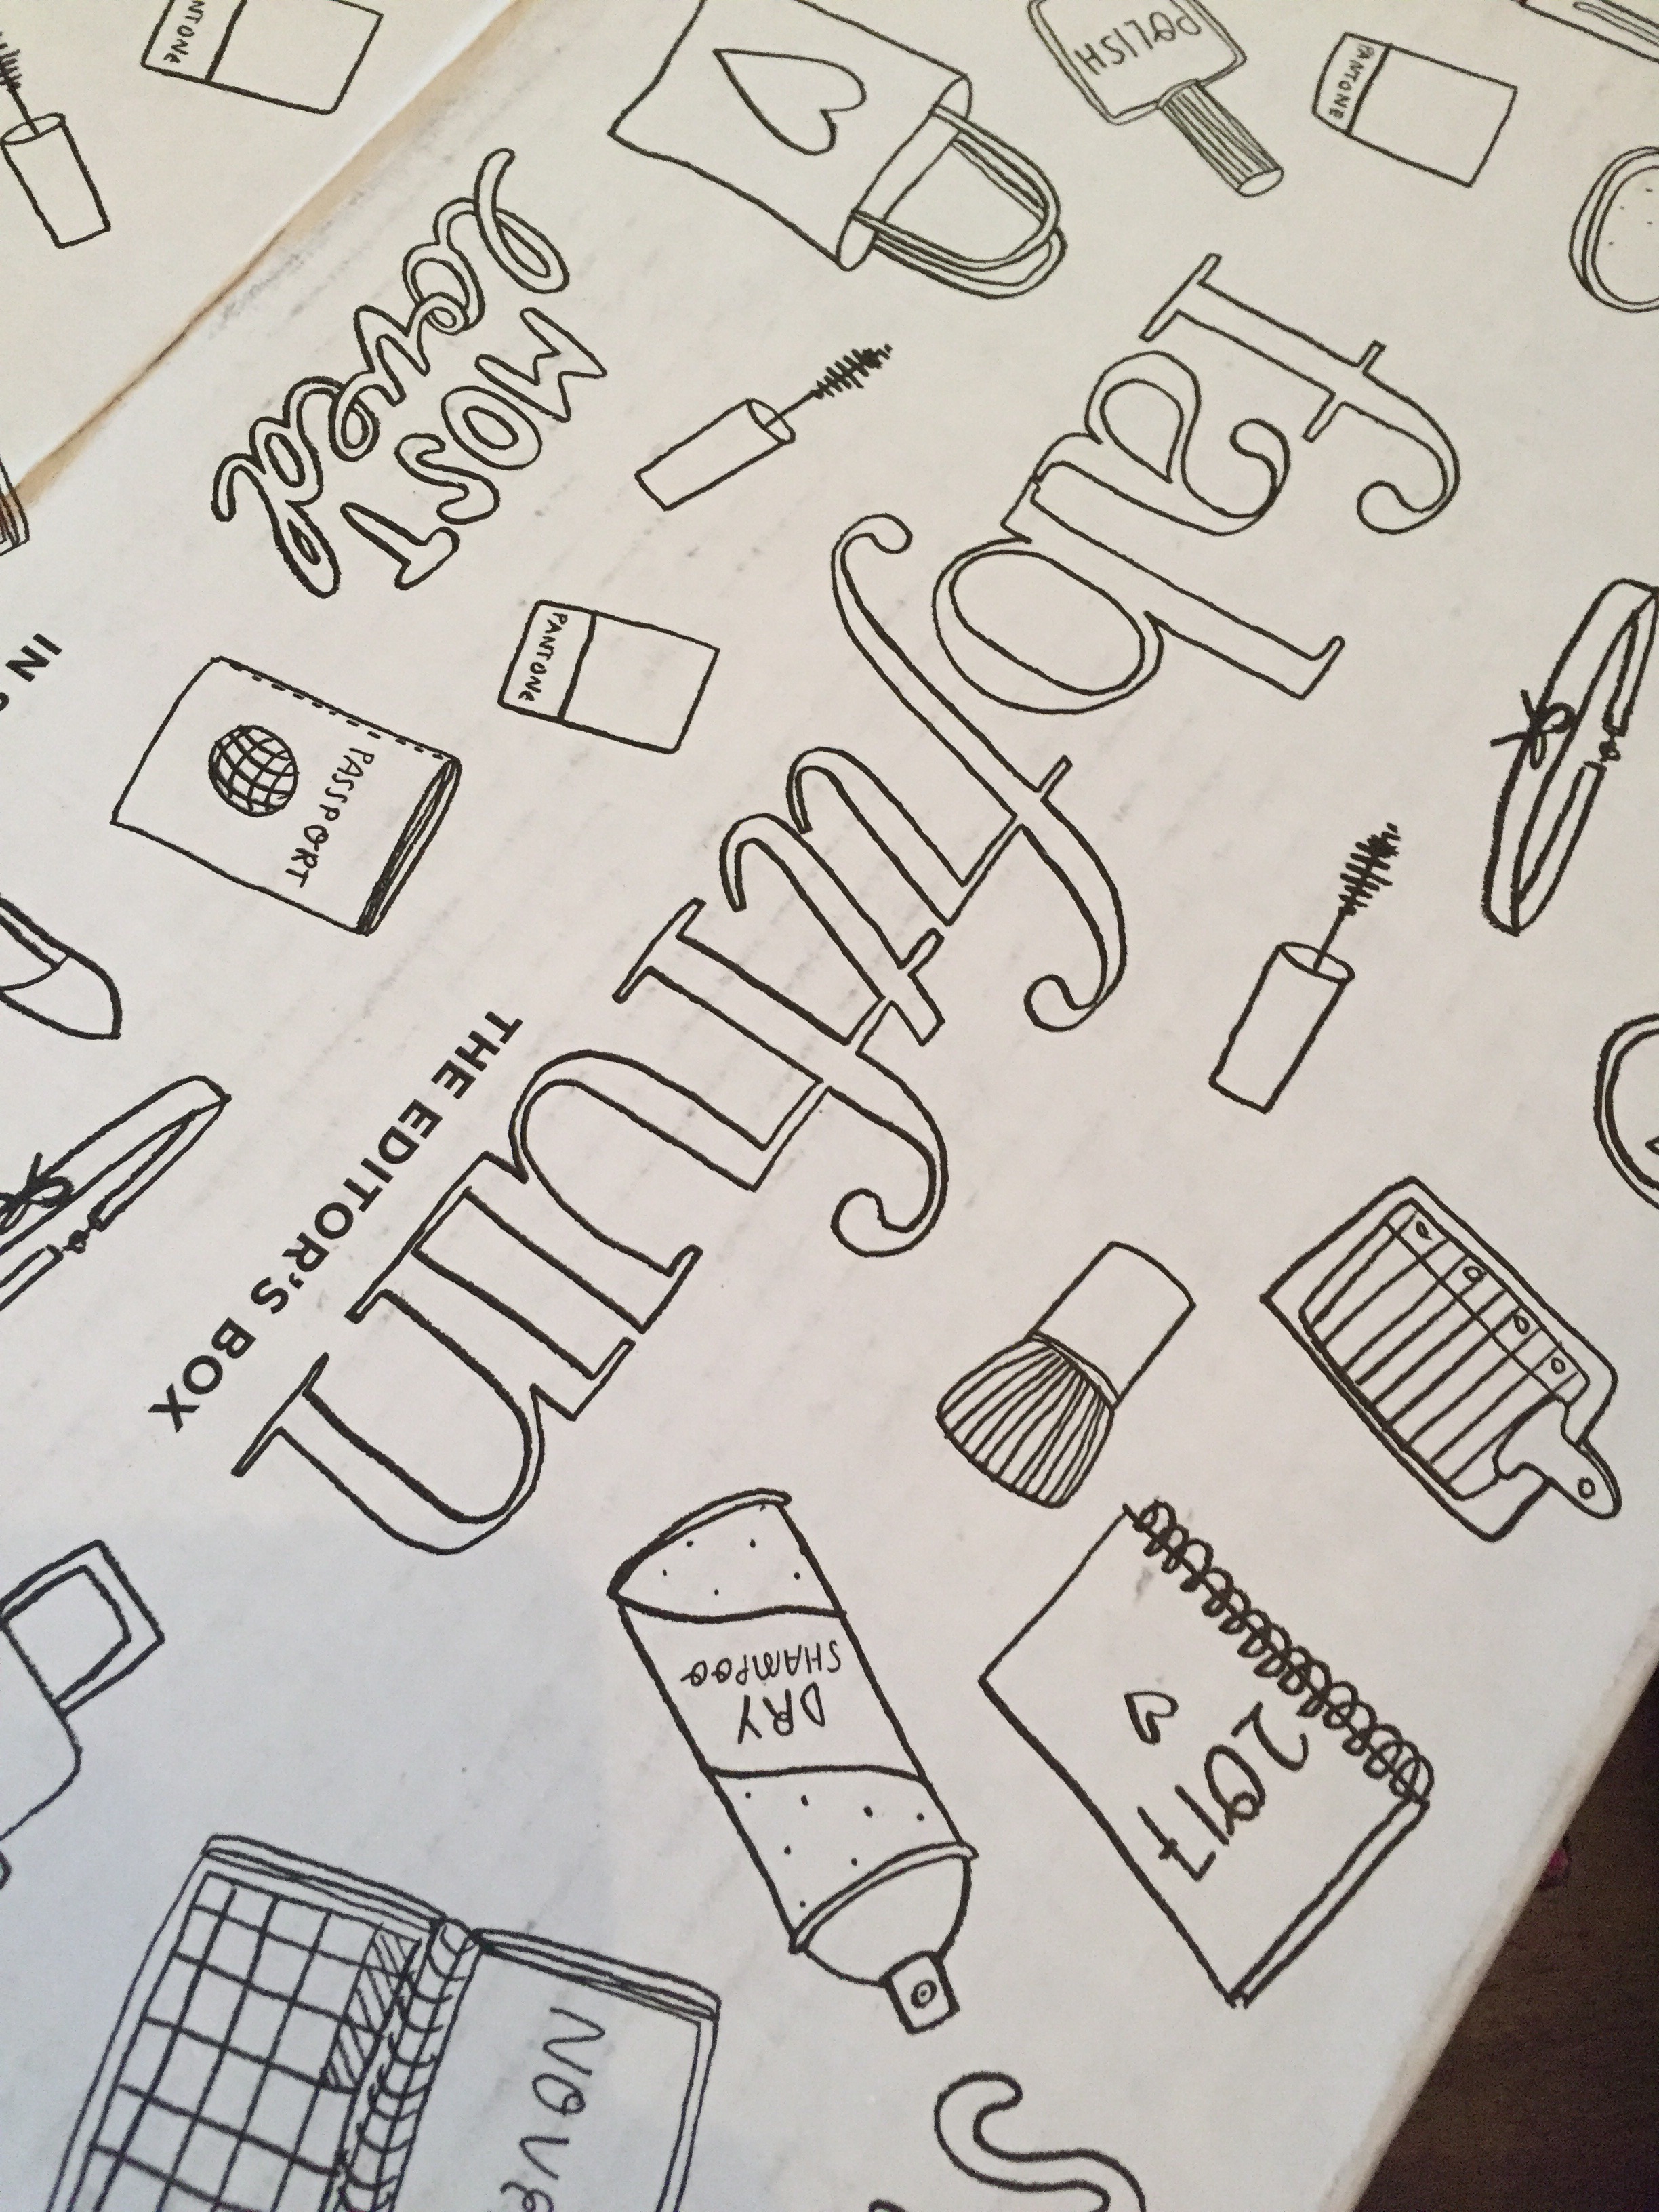 POLISH
PANTONE
fabfitfun
THE EDITOR'S BOX
MOST
loved
PANTONE
PASSPORT
IN
2017
DRY
SHAMPOO
NOVE
NTONE